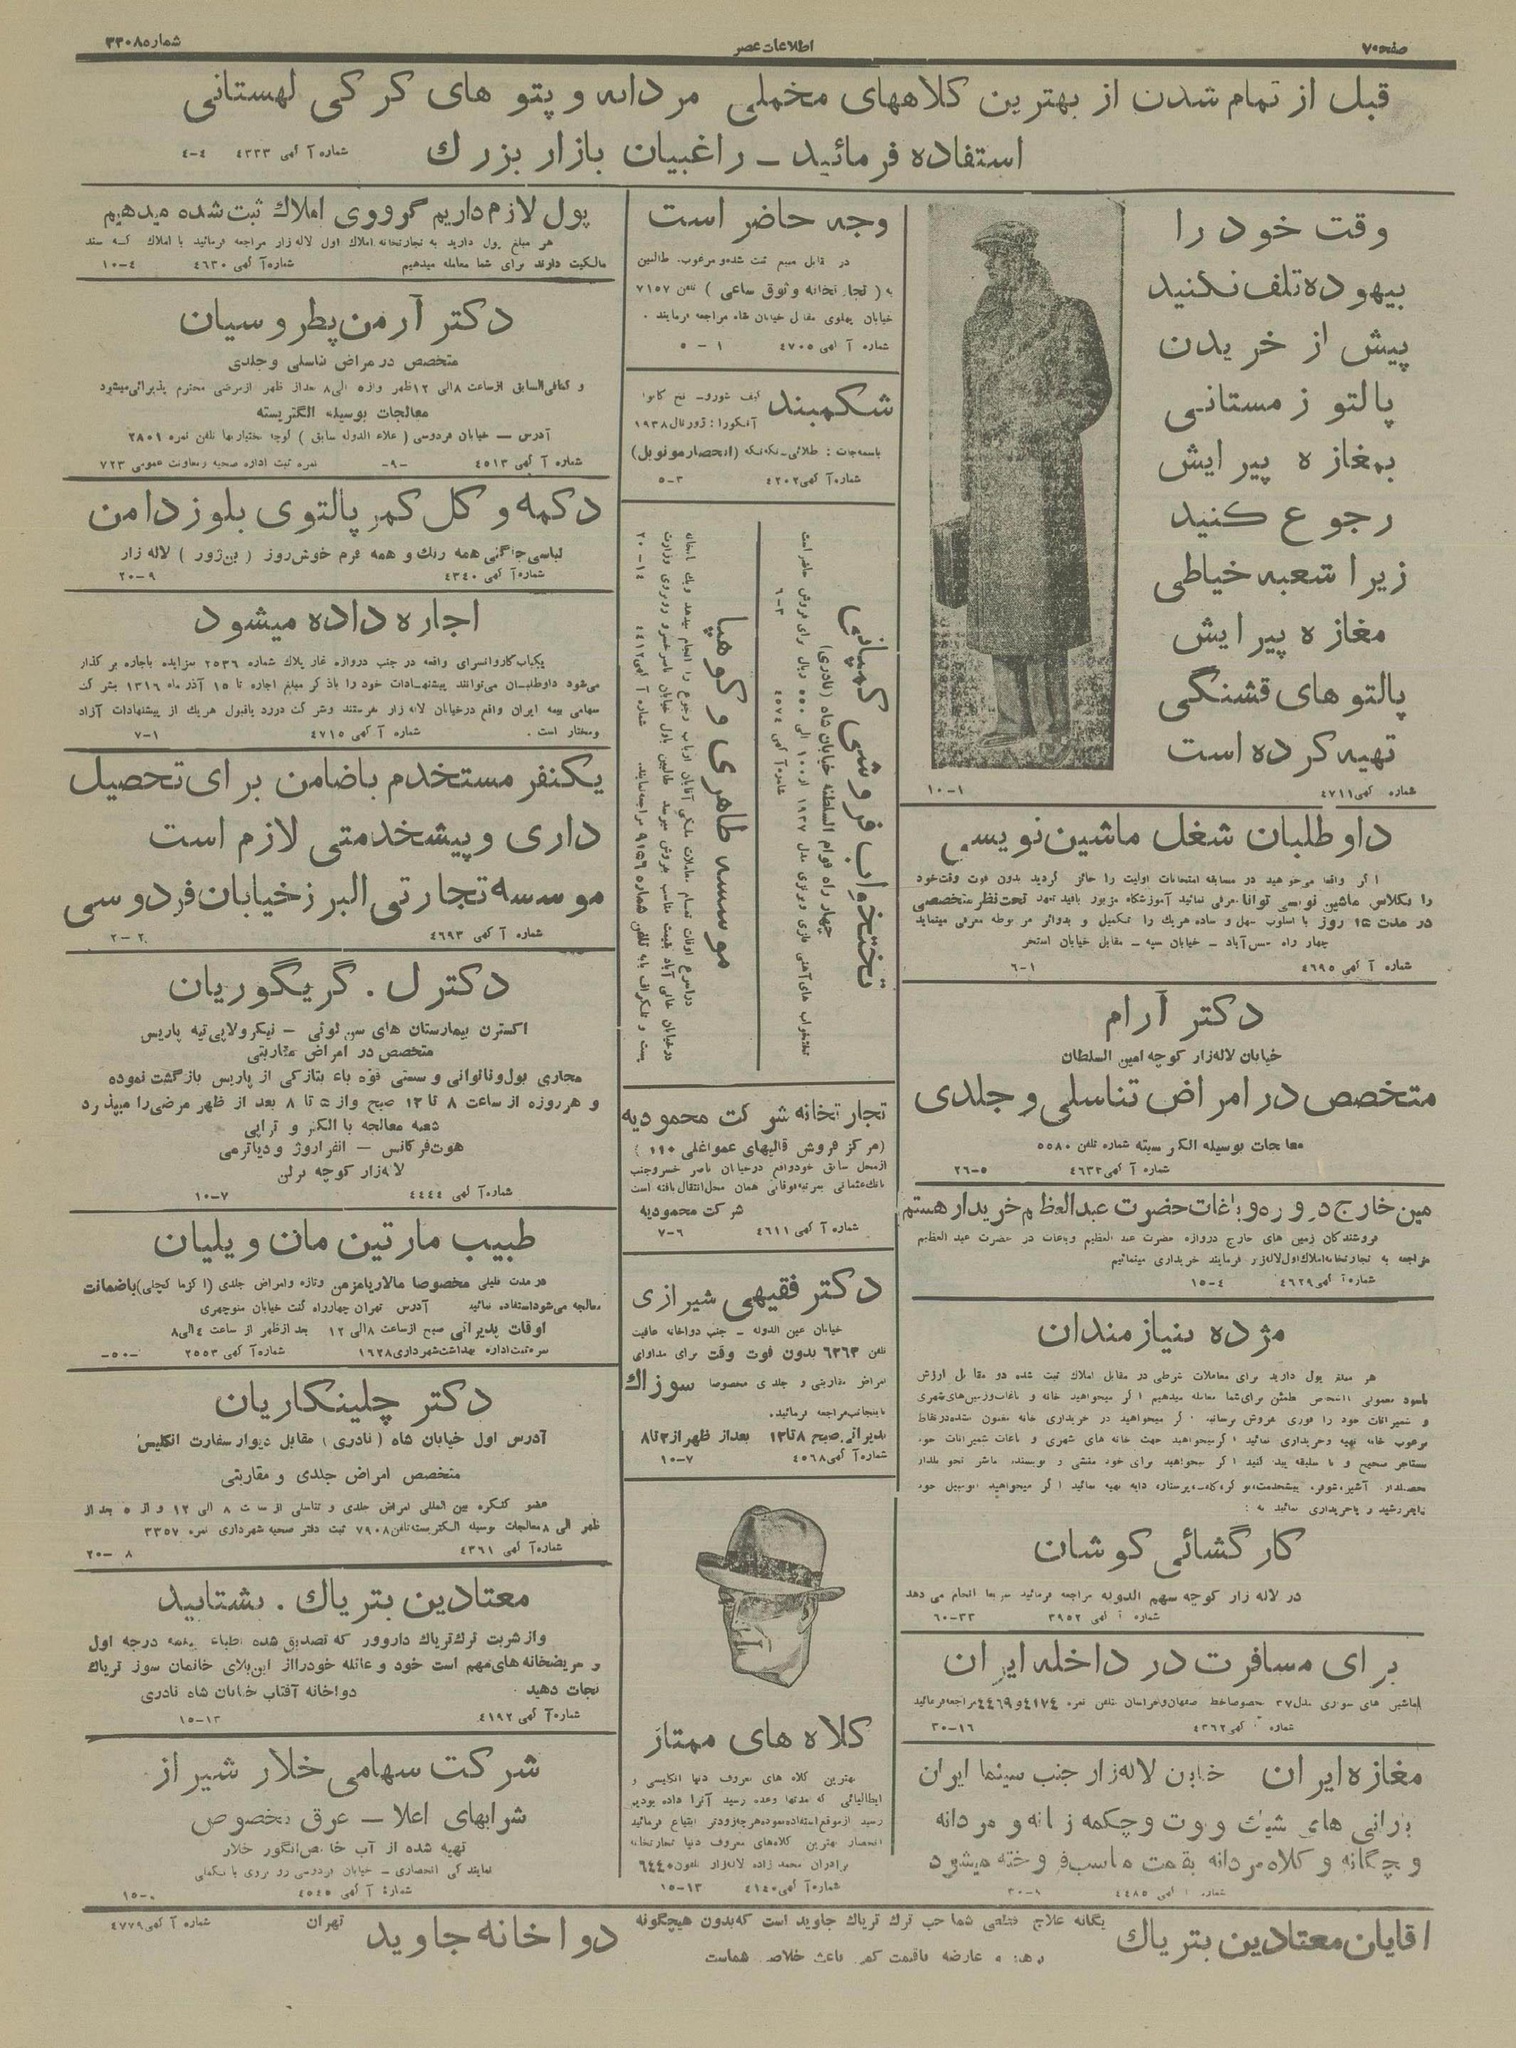 صفحه ۷
اطلاعات عصر
شماره ۳۳۰۸
قبل از تمام شدن از بهترین کلاههای مخملی مردانه و پتو های کرکی لهستانی
استفاده فرمائید ــ راغبیان بازار بزرك
شماره آگهی ۴۳۳۳ ۴-۴
وقت خود را
بیهوده تلف نکنید
پیش از خریدن
پالتو زمستانی
بمغازه پیرایش
رجوع کنید
زیرا شعبه خیاطی
مغازه پیرایش
پالتوهای قشنگی
تهیه کرده است
شماره گهی ۴۷۱۱ ۱-۱۰
داوطلبان شغل ماشین نویسی
اگر واقعا میخواهید در مسابقه امتحانات اولیت را حائز گردید بدون فوت وقت خود
را بکلاس ماشین نویسی توانا معرفی نمائید آموزشگاه مزبور باقید تعهد تحت نظر متخصصی
در مدت ۱۵ روز با اسلوب سهل و ساده هریك را تکمیل و بدوائر مربوطه معرفی مینماید
چهار راه حسن آباد ــ خیابان سپه ــ مقابل خیابان استخر
شماره آگهی ۴۶۹۵ ۱-۶
دکتر آرام
خیابان لاله‌زار کوچه امین السلطان
متخصص در امراض تناسلی و جلدی
معالجات بوسیله الکتریسته شماره تلفن ۵۵۸۰
شماره آگهی ۴۶۳۲ ۵-۲۶
مین خارج دروره وباغات حضرت عبدالعظیم خریدار هستم
فروشندگان زمین های خارج دروازه حضرت عبدالعظیم وباغات در حضرت عبدالعظیم
مراجعه به تجارتخانه املاك اول لاله‌زار فرمایند خریداری مینمائیم
شماره آگهی ۴۶۲۹ ۴-۱۵
مژده بنیازمندان
هر مبلغ پول دارید برای معاملات شرطی در مقابل املاك ثبت شده دو مقابل ارزش
باسود معمولی اشخاص مطمئن برای شما معامله میدهیم اگر میخواهید خانه و باغات وزمین‌های شهری
و شمیرانات خود را فوری بفروش برسانید اگر میخواهید در خریداری خانه مغبون نشده در نقاط
مرغوب خانه تهیه وخریداری نمائید اگر میخواهید جهت خانه های شهری و باغات شمیرانات خود
مستاجر صحیح و با سلیقه پیدا کنید اگر میخواهید برای خود منشی و نویسنده مباشر تحویلدار
تحصیلدار آشپز، شوفر، پیشخدمت، نوکر، کلفت، پرستار، دایه تهیه نمائید اگر میخواهید اتومبیل خود
بفروشید و یا خریداری نمائید به :
کارگشائی کوشان
در لاله زار کوچه سهم الدوله مراجعه فرمائید سریعا انجام می دهد
شماره آگهی ۳۹۵۲ ۳۳-۶۰
برای مسافرت در داخله ایران
ماشین های سواری مدل ۳۷ مخصوصا خط اصفهان وخراسان تلفن نمره ۴۱۷۴ و ۴۴۶۹ مراجعه فرمائید
شماره آگهی ۴۳۶۲ ۱۶-۳۰
مغازه ایران خیابان لاله‌زار جنب سینما ایران
بارانی های شیك و پوت و چکمه زنانه و مردانه
و بچگانه و کلاه مردانه بقیمت مناسب فروخته میشود
شماره آگهی ۴۴۸۵ ۸-۳۰
وجه حاضر است
در مقابل مبیع ثبت شده و مرغوب. طالبین
به ( تجارتخانه وثوق ساعی ) تلفن ۷۱۵۷
خیابان پهلوی مقابل خیابان شاه مراجعه فرمایند .
شماره آگهی ۴۷۰۵ ۱-۵
شکمبند
کیف شورو- نخ کاموا
آنگورا: ژورنال ۱۹۳۸
باسمه‌جات : طلائی- تکه‌تکه (انحصار مونوبل)
شماره آگهی ۴۲۰۲ ۳-۵
تختخواب فروشی کمپانی
چهار راه قوام السلطنه خیابان شاه (نادری)
تختخواب های آهنی فنری مدل ۱۹۳۷ از ۱۰۰ الی ۵۵۰ ریال برای فروش حاضر است
شماره آگهی ۴۵۷۴ ۳-۶
موسسه طاهری و کوهپا
در اسرع اوقات تمام معاملات ملکی آقایان ارباب رجوع را انجام میدهد ویك بابخانه
در خیابان خانی آباد بقیمت مناسب بفروش میرسد طالبین باول خیابان ناصرخسرو روبروی وزارت
پست و تلگراف یابه تلفن شماره ۹۱۵۶ مراجعه نمایند. شماره آگهی ۴۴۱۲ ۱۴-۲۰
تجارتخانه شرکت محمودیه
(مرکز فروش قالیهای عمواغلی ۱۱۰)
از محل سابق خود واقع در خیابان ناصر خسرو جنب
بانك عثمانی بمرتبه فوقانی همان محل انتقال یافته است
شرکت محمودیه
شماره آگهی ۴۶۱۱ ۶-۷
دکتر فقیهی شیرازی
خیابان عین الدوله ــ جنب دواخانه عافیت
تلفن ۶۲۶۳ بدون فوت وقت برای مداوای
امراض مقاربتی و جلدی مخصوصا سوزاك
باینجانب مراجعه فرمائید.
پذیرائی صبح ۸ تا ۱۲ بعد از ظهر از ۳ تا ۸
شماره آگهی ۴۵۶۸ ۷-۱۰
کلاه های ممتاز
بهترین کلاه های معروف دنیا انگلیسی و
ایطالیائی که مدتها وعده رسید آنرا داده بودیم
رسید از موقع استفاده نموده هرچه زودتر ابتیاع فرمائید
انحصار بهترین کلاه‌های معروف دنیا تجارتخانه
برادران محمد زاده لاله‌زار تلفون ۶۴۴۰
شماره آگهی ۴۱۴۰ ۱۳-۱۵
پول لازم داریم گرووی املاك ثبت شده میدهیم
هر مبلغ پول دارید به تجارتخانه املاك اول لاله زار مراجعه فرمائید با املاك که سند
مالکیت دارند برای شما معامله میدهیم شماره آگهی ۴۶۳۰ ۴-۱۰
دکتر آرمن پطروسیان
متخصص در مراض تناسلی و جلدی
و کمافی‌السابق از ساعت ۸ الی ۱۲ ظهر و از ۵ الی ۸ بعد از ظهر از مرضی محترم پذیرائی میشود
معالجات بوسیله الکتریسته
آدرس ــ خیابان فردوسی ( علاء الدوله سابق ) کوچه بختیاریها تلفن نمره ۲۸۰۱
شماره آگهی ۴۵۱۳ -۹- نمره ثبت اداره صحیه ومعاونت عمومی ۷۲۳
دکمه و گل کمر پالتوی بلوز دامن
لباسی جنگنی همه رنك و همه فرم خوش روز ( بن‌ژور ) لاله زار
شماره آگهی ۴۳۴۰ ۹-۲۰
اجاره داده میشود
یکباب کاروانسرای واقعه در جنب دروازه غار پلاك شماره ۲۵۳۶ بمزایده باجاره برگذار
می‌شود داوطلبان می‌توانند پیشنهادات خود را با ذکر مبلغ اجاره تا ۱۵ آذر ماه ۱۳۱۶ بشرکت
سهامی بیمه ایران واقع در خیابان لاله زار بفرستند وشرکت در رد یا قبول هریك از پیشنهادات آزاد
ومختار است . شماره آگهی ۴۷۱۵ ۱-۷
یکنفر مستخدم باضامن برای تحصیل
داری و پیشخدمتی لازم است
موسسه تجارتی البرز خیابان فردوسی
شماره آگهی ۴۶۹۳ ۲-۲
دکتر ل . گریگوریان
اکسترن بیمارستان های سن لوئی ــ نیکر ولاپی‌تیه پاریس
متخصص در امراض مقاربتی
مجاری بول و ناتوانی و سستی قوه باء بتازگی از پاریس بازگشت نموده
و هر روزه از ساعت ۸ تا ۱۲ صبح و از ۵ تا ۸ بعد از ظهر مرضی را میپذیرد
شعبه معالجه با الکتروتراپی
هوت‌فرکانس ــ انفراروژ و دیاترمی
لاله‌زار کوچه برلن
شماره آگهی ۴۴۴۴ ۷-۱۰
طبیب مارتین مانویلیان
در مدت قلیلی مخصوصا مالاریا مزمن وتازه وامراض جلدی (اکزما کچلی) باضمانت
معالجه می‌شود استفاده نمائید آدرس تهران چهارراه کنت خیابان منوچهری
اوقات پذیرائی صبح از ساعت ۸ الی ۱۲ بعد از ظهر از ساعت ۴ الی ۸
نمره ثبت اداره بهداشت شهرداری ۱۶۲۸ شماره آگهی ۲۵۵۳ -۵۰-
دکتر چلینگاریان
آدرس اول خیابان شاه (نادری) مقابل دیوار سفارت انگلیس
متخصص امراض جلدی و مقاربتی
عضو کنگره بین المللی امراض جلدی و تناسلی از ساعت ۸ الی ۱۲ و از ۵ بعد از
ظهر الی ۸ معالجات بوسیله الکتریسته تلفن ۷۹۰۸ ثبت دفتر صحیه شهرداری نمره ۳۳۵۷
شماره آگهی ۴۳۶۱ ۸-۲۰
معتادین بتریاك . بشتابید
و از شربت ترك تریاك داروور که تصدیق شده اطباء بیمه درجه اول
و مریضخانه های مهم است خود و عائله خود را از این بلای خانمان سوز تریاك
نجات دهید دواخانه آفتاب خیابان شاه نادری
شماره آگهی ۴۱۹۲ ۱۳-۱۵
شرکت سهامی خلار شیراز
شرابهای اعلا ــ عرق مخصوص
تهیه شده از آب خالص انگور خلار
نمایندگی انحصاری ــ خیابان فردوسی روبروی باسکملی
شماره آگهی ۴۵۴۵ ۱۵-
اقایان معتادین بتریاك
یگانه علاج قطعی شما حب ترك تریاك جاوید است که بدون هیچگونه
عارضه باقیمت کم باعث خلاصی شماست
دواخانه جاوید
تهران
شماره آگهی ۴۷۷۹